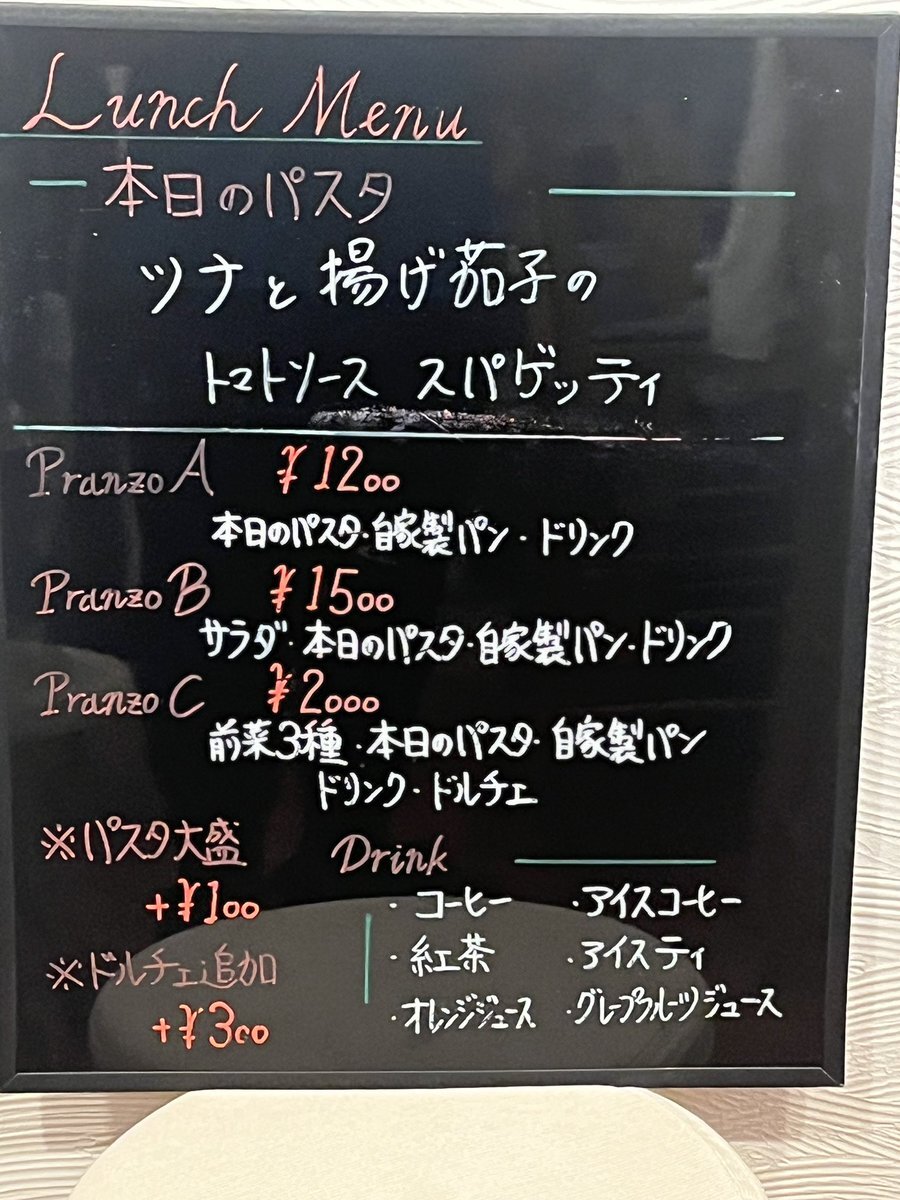 Lunch Menu
本日のパスタ
ツナと揚げ茄子の
トマトソース スパゲッティ
Pranzo A ¥1200
本日のパスタ・自家製パン・ドリンク
Pranzo B ¥1500
サラダ・本日のパスタ・自家製パン・ドリンク
Pranzo C ¥2000
前菜3種・本日のパスタ・自家製パン
ドリンク・ドルチェ
※パスタ大盛
+¥100
※ドルチェ追加
+¥300
Drink
・コーヒー ・アイスコーヒー
・紅茶 ・アイスティ
・オレンジジュース ・グレープフルーツジュース